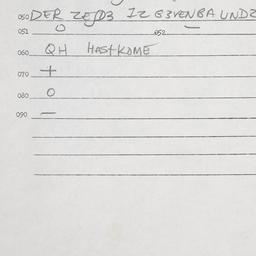 050 DER ZEJD3 IZ G3VENBA UND2
051 O 052 —
060 QH HASTKOME
070 +
080 O
090 —